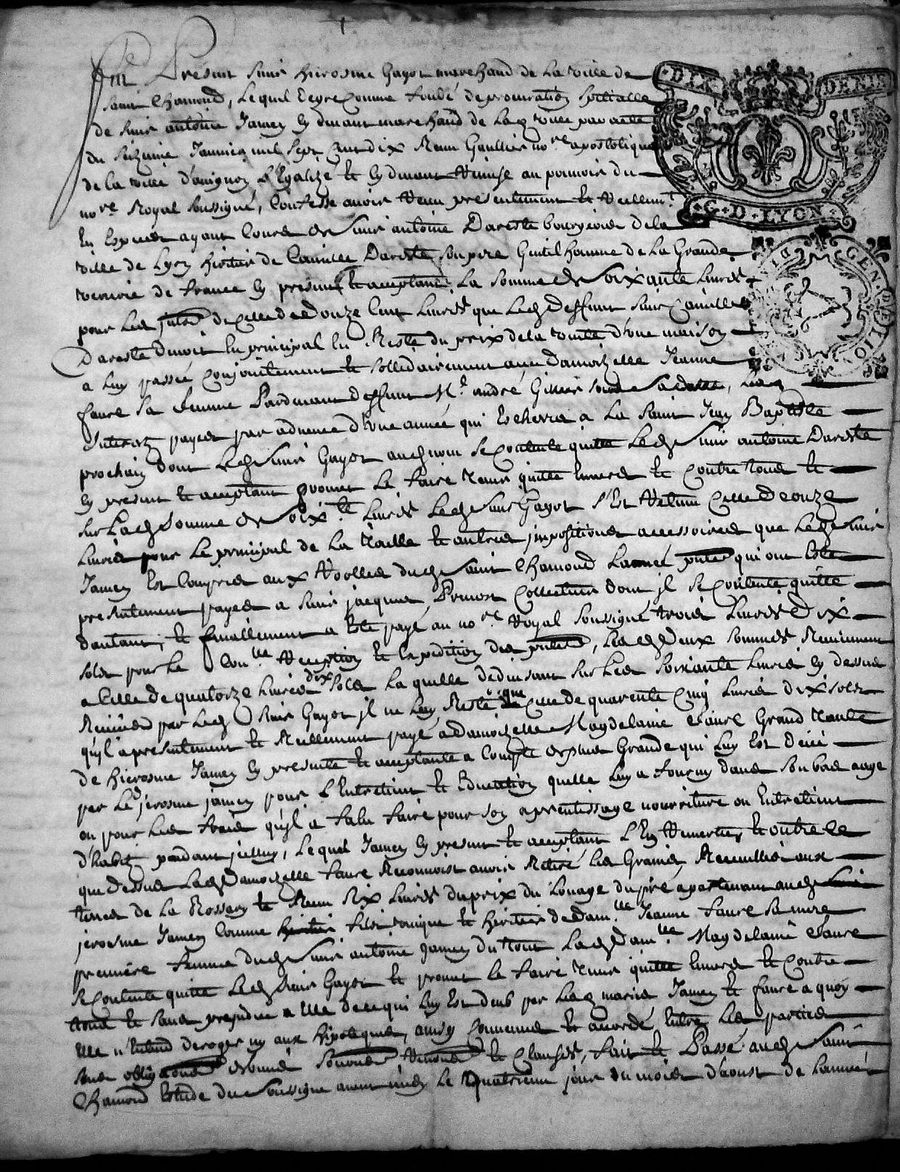 Fut Present Sieur Hierosme Gayot marchand de la ville de
DIX DENIE
saint Chamond, lequel comme fondé de procuration spécialle
de Sieur antoine Jamen cy devant marchand de lad. ville par acte
du Janvier mil sept cent dix Gaultier no.re apostolique
G. D. LYON
de la ville d'avignon Légalizé et cy devant au pouvoir du
no.re Royal soussigné, Confesse avoir Receu présentement et Réellem.t
En Espèces ayant Cours de Sieur antoine Dareste bourgeois de la
ville de Lyon heritier de Camille Dareste, son pere Gentilhomme de La Grande
GEN
venerie de france cy présent et acceptant La Somme de Soixante Livres
pour Les de Celle de douze Cent Livres que Led. deffunt Sieur Camille
Dareste devoit En principal En Reste du prix de la vente d'une maison
a Luy passée Conjointement et sollidairement avec damoizelle Jeanne
faure sa femme Pardevant deffunt M.e andré Lad.
Interests payés par advance d'une année qui Escherra a La Saint Jean Baptiste
prochain dont Led. Sieur Gayot aud. nom se Contente quitte Led. Sieur antoine Dareste
cy present et acceptant promet Le faire Tenir quitte Envers et Contre tous et
sur Lad. Somme de Soix.te Livres Led. Sieur Gayot s'Est Retenu Celle de onze
Livres pour Le principal de La Taille et autres impositions accessoires que Led. Sieur
Jamen Est Compris aux Rolles dud. Saint Chamond qui ont Esté
présentement payés a Sieur jacques Collecteur dont jl se Contente quitte
dautant, et finallement a Esté payé au no.re Royal Soussigné trois Livres Dix
sols pour Le Reception et Expedition des Lesd. deux Sommes Reviennent
a Celle de quatorze Livres dix sols La quelle deduisant sur Les soixante Livres cy dessus
Receues par Led. Sieur Gayot jl ne Luy Reste que Celle de quarente Cinq Livres dix sols
qu'jl a présentement et Réellement payé a damoizelle Magdelaine faure Grand Tante
de Hierosme Jamen cy presente et acceptante a Compte de plus Grande qui Luy Est deue
par Led. jerosme jamen pour L'Entretient et Education quelle Luy a fourny dans son bas aage
ou pour Les frais qu'jl a falu faire pour son aprentissage nourriture ou Entretient
d'habits pendant jcelluy, Lequel Jamen cy present et acceptant L'En Remercie, et outre ce
que dessus Lad. Damoizelle faure Reconnoist avoir Retiré Les Grains Recueillis aux
terres de La et Receu Six Livres du prix du Louage du pré apartenant aud.
jerosme Jamen Comme fils unique et heritier de Dam.lle Jeanne faure sa mere
premiere femme dud. Sieur antoine Jamen du tout Lad. dam.lle Magdelaine faure
se Contente quitte Led. Sieur Gayot et promet Le faire Tenir quitte Envers et Contre
tous et sans prejudice a Elle de ce qui Luy Est deub par Lesd. mariés Jamen et faure a quoy
Elle n'Entend deroger ny aux hipoteques, ainsy Convenu et accordé Entre Les parties
sous obligations Renonc. et Clauses, fait et Passé aud. Saint
Chamond Estude du Soussigné avant midy Le Quatrieme jour du mois d'aoust de Lannée